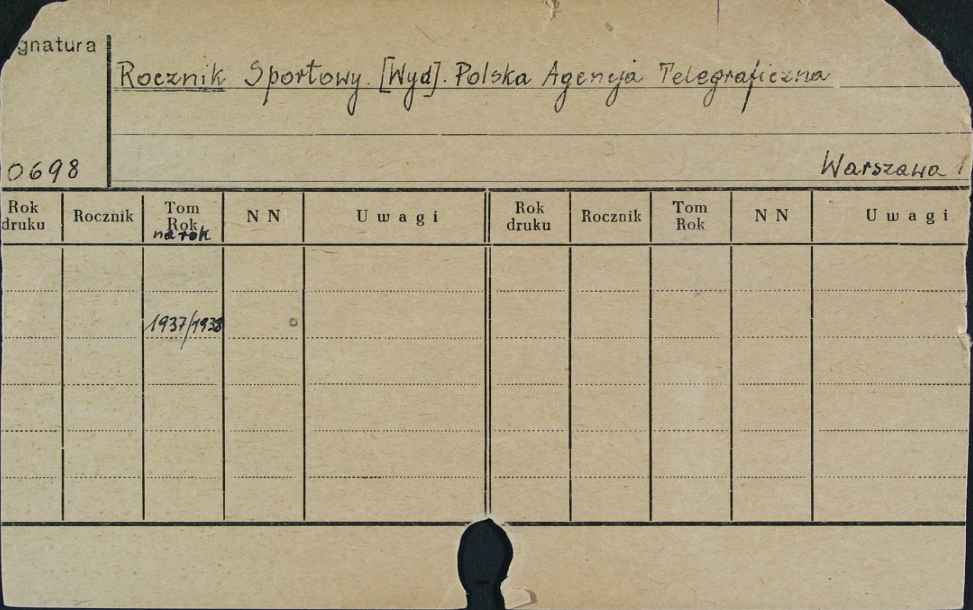 gnatura
Rocznik Sportowy. [Wyd]. Polska Agencja Telegraficzna
0698
Warszawa
Rok druku Rocznik Tom Rok na rok NN Uwagi Rok druku Rocznik Tom Rok NN Uwagi
1937/1938